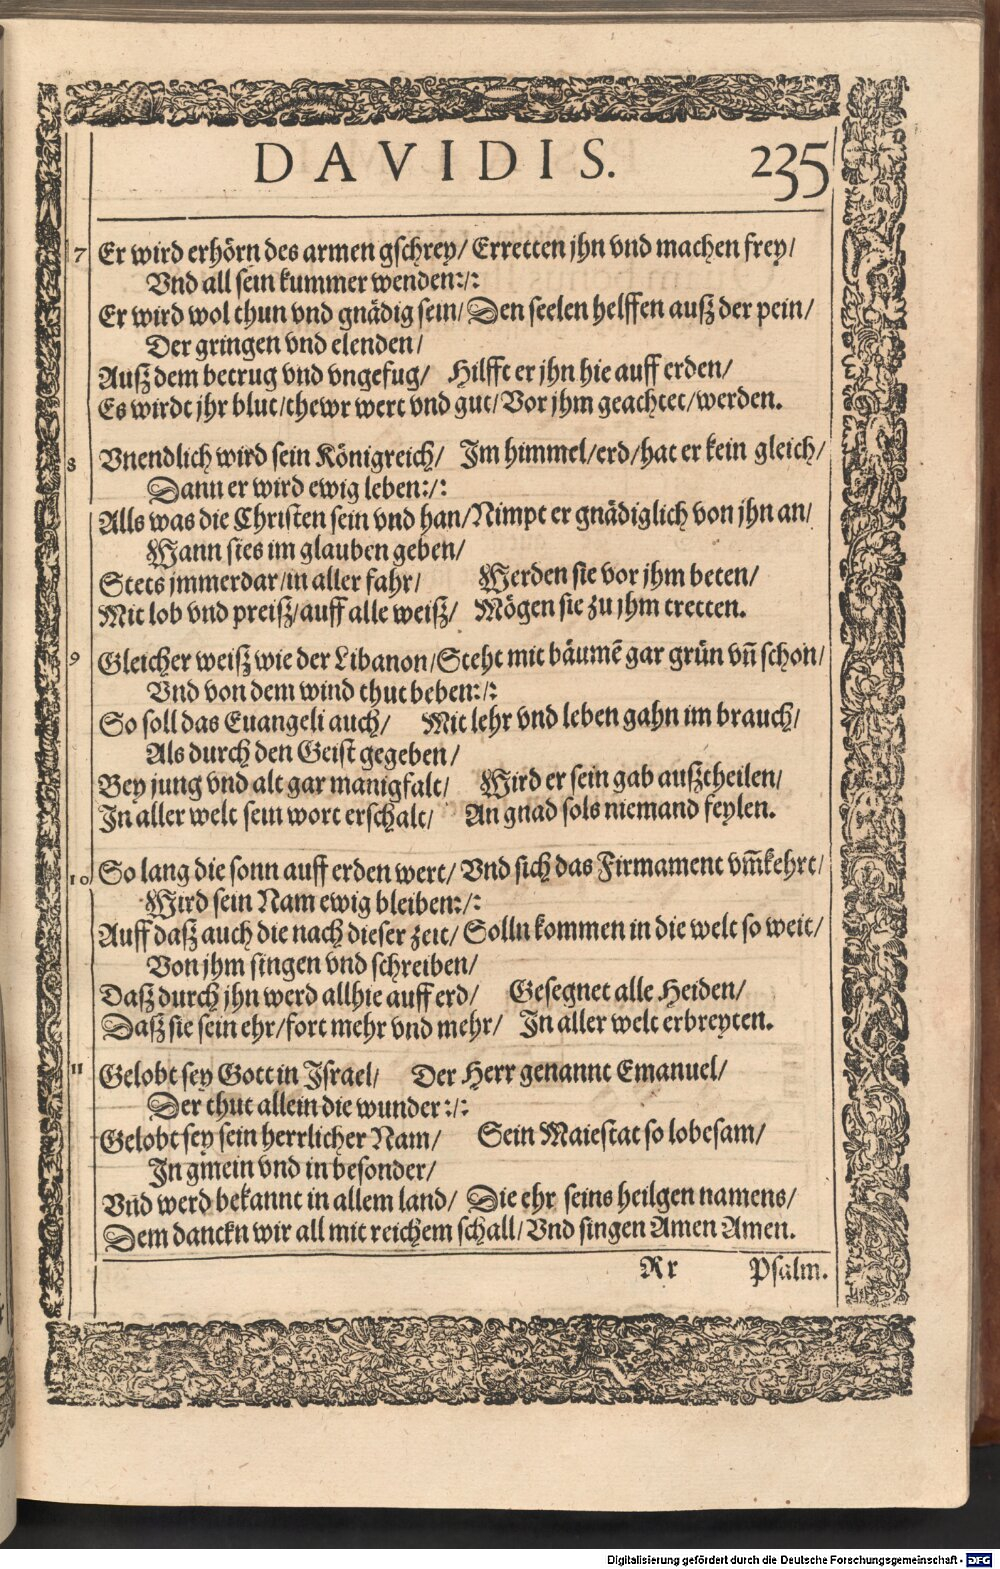 DAVIDIS. 235
7 Er wird erhörn des armen gschrey/ Erretten jhn vnd machen frey/
Vnd all sein kummer wenden:/:
Er wird wol thun vnd gnädig sein/ Den seelen helffen auß der pein/
Der gringen vnd elenden/
Auß dem betrug vnd vngefug/ Hilfft er jhn hie auff erden/
Es wirdt jhr blut/thewr wert vnd gut/ Vor jhm geachtet/werden.
8 Vnendlich wird sein Königreich/ Im himmel/erd/hat er kein gleich/
Dann er wird ewig leben:/:
Alls was die Christen sein vnd han/ Nimpt er gnädiglich von jhn an/
Wann sies im glauben geben/
Stets jmmerdar/in aller fahr/ Werden sie vor jhm beten/
Mit lob vnd preiß/auff alle weiß/ Mögen sie zu jhm tretten.
9 Gleicher weiß wie der Libanon/ Steht mit bäumē gar grün vñ schon/
Vnd von dem wind thut beben:/:
So soll das Euangeli auch/ Mit lehr vnd leben gahn im brauch/
Als durch den Geist gegeben/
Bey jung vnd alt gar manigfalt/ Wird er sein gab außtheilen/
In aller welt sein wort erschalt/ An gnad sols niemand feylen.
10 So lang die sonn auff erden wert/ Vnd sich das Firmament vm̄kehrt/
Wird sein Nam ewig bleiben:/:
Auff daß auch die nach dieser zeit/ Solln kommen in die welt so weit/
Von jhm singen vnd schreiben/
Daß durch jhn werd allhie auff erd/ Gesegnet alle Heiden/
Daß sie sein ehr/fort mehr vnd mehr/ In aller welt erbreyten.
11 Gelobt sey Gott in Israel/ Der Herr genannt Emanuel/
Der thut allein die wunder:/:
Gelobt sey sein herrlicher Nam/ Sein Maiestat so lobesam/
In gmein vnd in besonder/
Vnd werd bekannt in allem land/ Die ehr seins heilgen namens/
Dem danckn wir all mit reichem schall/ Vnd singen Amen Amen.
Rr Psalm.
Digitalisierung gefördert durch die Deutsche Forschungsgemeinschaft - DFG